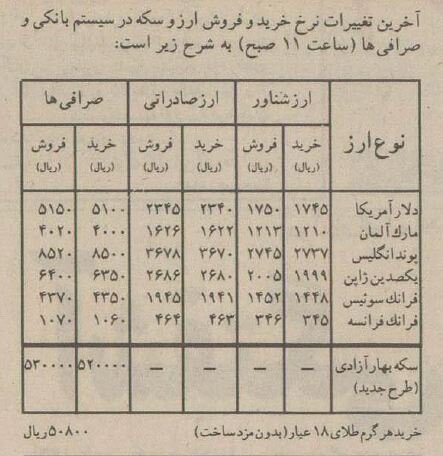 آخرین تغییرات نرخ خرید و فروش ارز و سکه در سیستم بانکی و
صرافی‌ها (ساعت ۱۱ صبح) به شرح زیر است:
نوع ارز ارز شناور ارز صادراتی صرافی‌ها
خرید فروش خرید فروش خرید فروش
(ریال) (ریال) (ریال) (ریال) (ریال) (ریال)
دلار آمریکا ۱۷۴۵ ۱۷۵۰ ۲۳۴۰ ۲۳۴۵ ۵۱۰۰ ۵۱۵۰
مارک آلمان ۱۲۱۰ ۱۲۱۳ ۱۶۲۲ ۱۶۲۶ ۴۰۰۰ ۴۰۲۰
پوند انگلیس ۲۷۳۷ ۲۷۴۵ ۳۶۷۰ ۳۶۷۸ ۸۵۰۰ ۸۵۲۰
یکصدین ژاپن ۱۹۹۹ ۲۰۰۵ ۲۶۸۰ ۲۶۸۶ ۶۳۵۰ ۶۴۰۰
فرانک سوئیس ۱۴۴۸ ۱۴۵۲ ۱۹۴۱ ۱۹۴۵ ۴۳۵۰ ۴۳۷۰
فرانک فرانسه ۳۴۵ ۳۴۶ ۴۶۳ ۴۶۴ ۱۰۶۰ ۱۰۷۰
سکه بهار آزادی — — — — ۵۲۰۰۰۰ ۵۳۰۰۰۰
(طرح جدید)
خرید هر گرم طلای ۱۸ عیار (بدون مزد ساخت) ۵۰۸۰۰ ریال